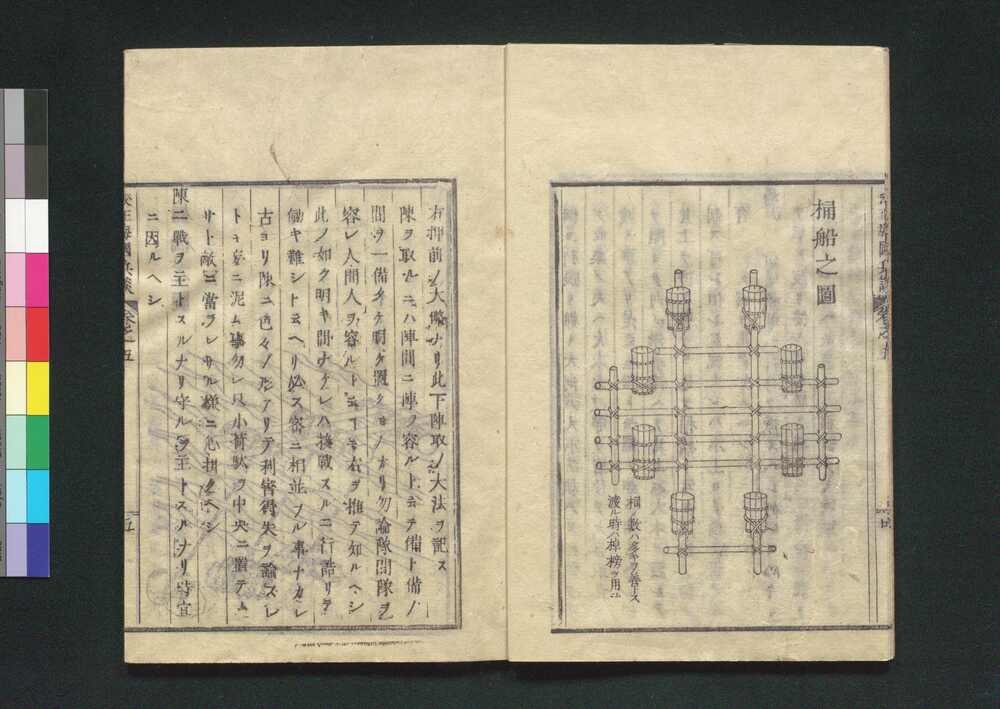 桶船之圖
桶ノ數ハ多キヲ善トス
渡ル時ハ棹榜ヲ用ユ
右押前ノ大略ナリ此下陣取ノ大法ヲ記ス
陳ヲ取ルニハ陣間ニ陣ヲ容ルト云テ備ト備ノ
間ヲ一備タケ明ケ置クヨノナリ勿論隊間隊ヲ
容レ人間人ヲ容ルトニフモ右ヲ推テ知ルヘシ
此ノ如ク明キ間ナケレハ接戰スルニ行詰リテ
働キ難シト云ヘリ必ス密ニ相並フル事ナカレ
古ヨリ陳ニ色々ノ形アリテ利害得失ヲ論スレ
トモ妄ニ泥ム事勿レ只小荷駄ヲ中央ニ置テ
リト敵ニ當ラレサル樣ニ心掛クヘシ
陳ニ戰ヲ主トスルナリ守ルヲ主トスルナリ時宜
ニ因ルヘシ
校正海國兵談
卷之五
五